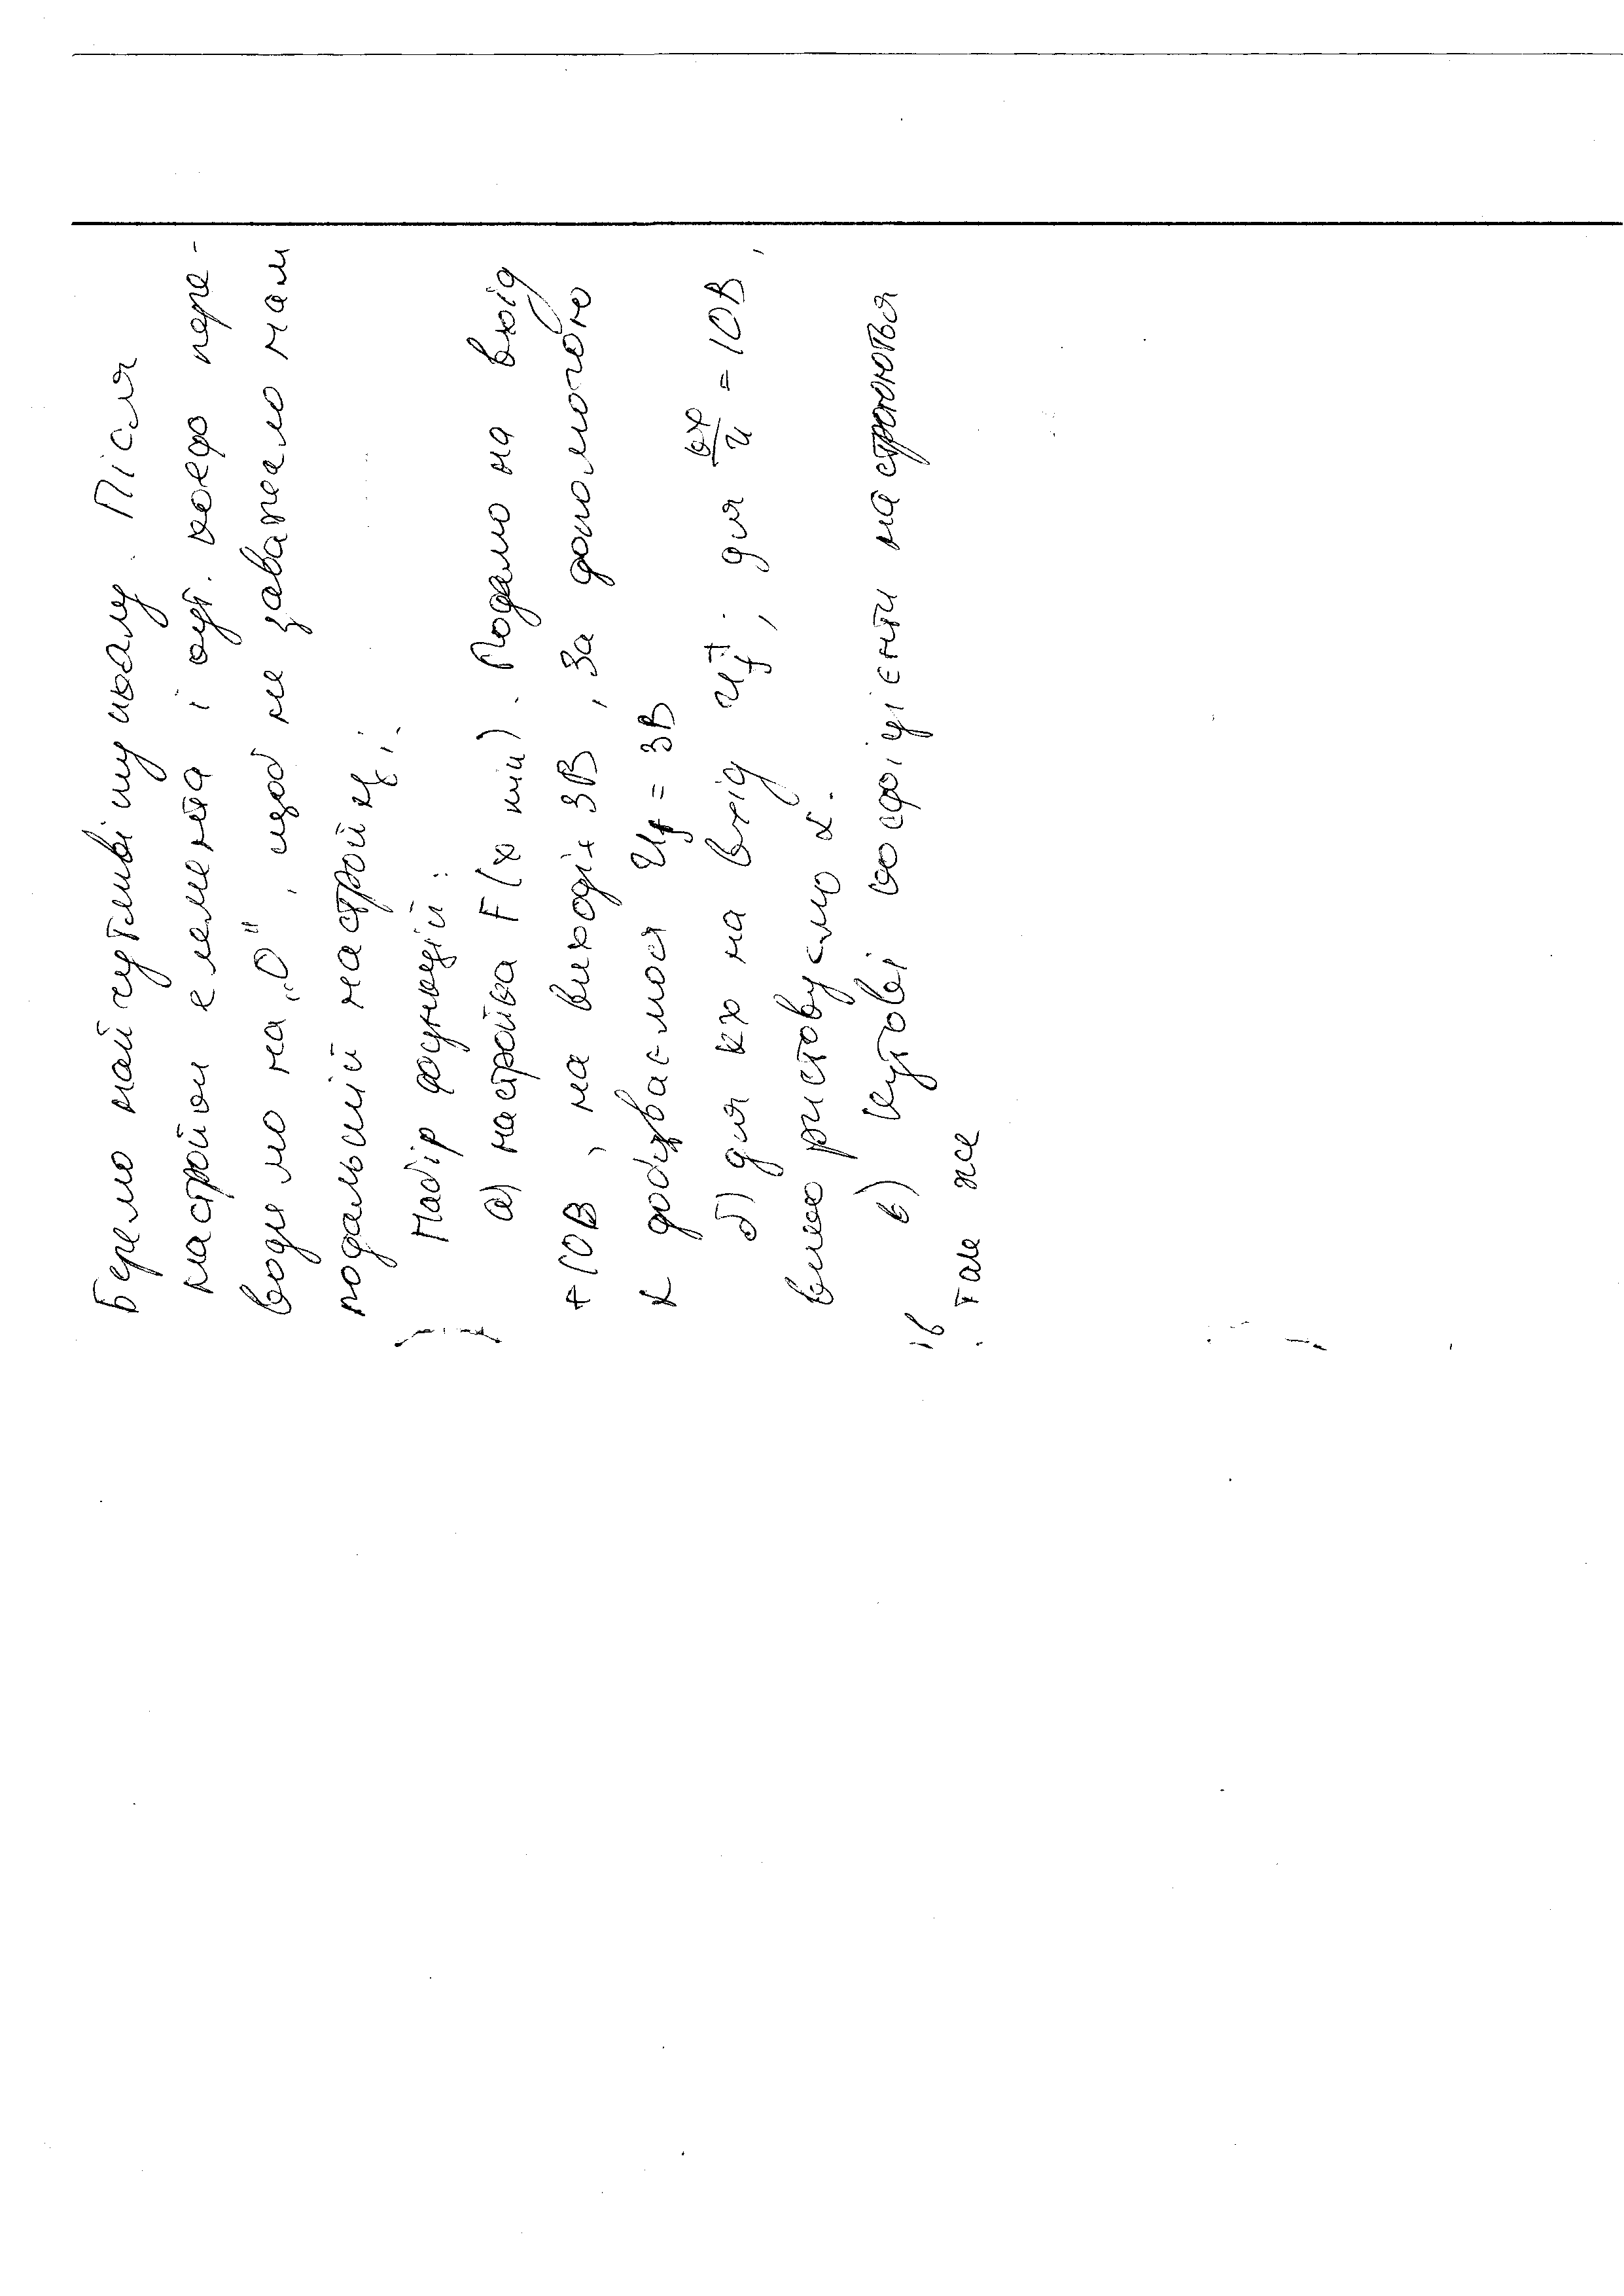 Беремо найчутливішу шкалу. Після
настройки елемента і оці. коеф пере-
водимо на „0", щоб не заважало нам
подальшій настройці.
Набір функцій:
а) настройка F(x min). Подамо на вхід
+10В, на виході 3В, За допомогою
α добиваємося Uf = 3В
б) для кх на вхід Uf; для = 10В,
використовуємо α.
в) кутові коефіцієнти настроюються
так же